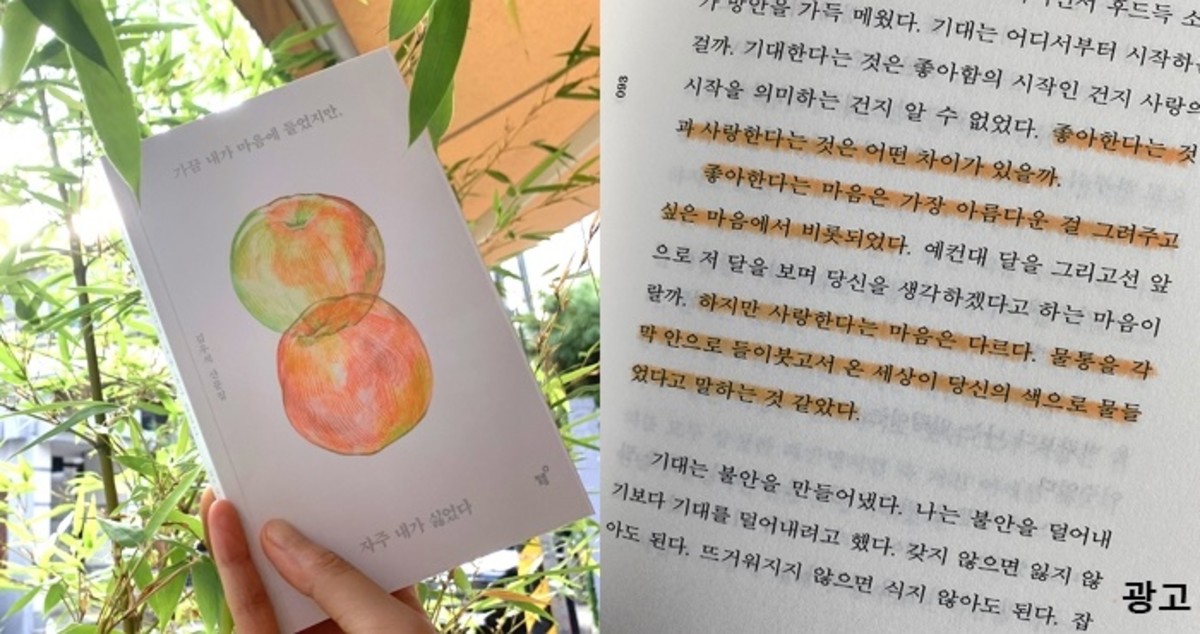 가끔 내가 마음에 들었지만,
자주 내가 싫었다
093
가 방안을 가득 메웠다. 기대는 어디서부터 시작하는
걸까. 기대한다는 것은 좋아함의 시작인 건지 사랑의
시작을 의미하는 건지 알 수 없었다. 좋아한다는 것
과 사랑한다는 것은 어떤 차이가 있을까.
좋아한다는 마음은 가장 아름다운 걸 그려주고
싶은 마음에서 비롯되었다. 예컨대 달을 그리고선 앞
으로 저 달을 보며 당신을 생각하겠다고 하는 마음이
랄까. 하지만 사랑한다는 마음은 다르다. 물통을 각
막 안으로 들이붓고서 온 세상이 당신의 색으로 물들
었다고 말하는 것 같았다.
기대는 불안을 만들어냈다. 나는 불안을 덜어내
기보다 기대를 덜어내려고 했다. 갖지 않으면 잃지 않
아도 된다. 뜨거워지지 않으면 식지 않아도 된다. 잡
광고